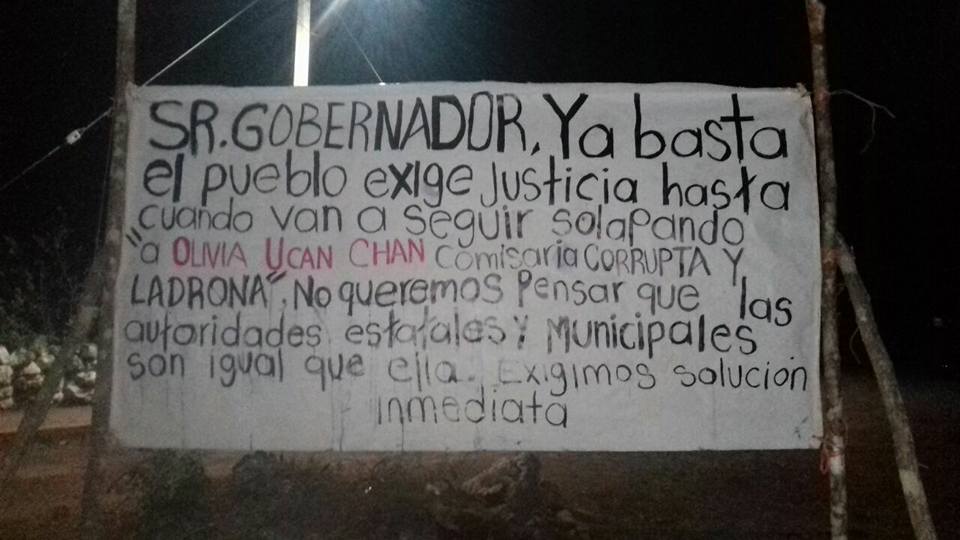 SR. GOBERNADOR, Ya basta
el pueblo exige justicia hasta
cuando van a seguir solapando
"a OLIVIA UCAN CHAN comisaria CORRUPTA Y
LADRONA". No queremos Pensar que las
autoridades estatales Y Municipales
son igual que ella. Exigimos solución
inmediata